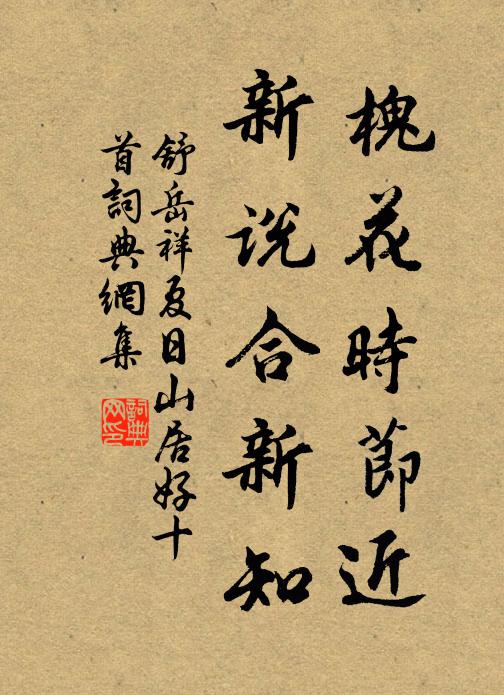 槐花時節近
新説合新知
舒岳祥夏日山居好十
首詞典網集
詞典
网印